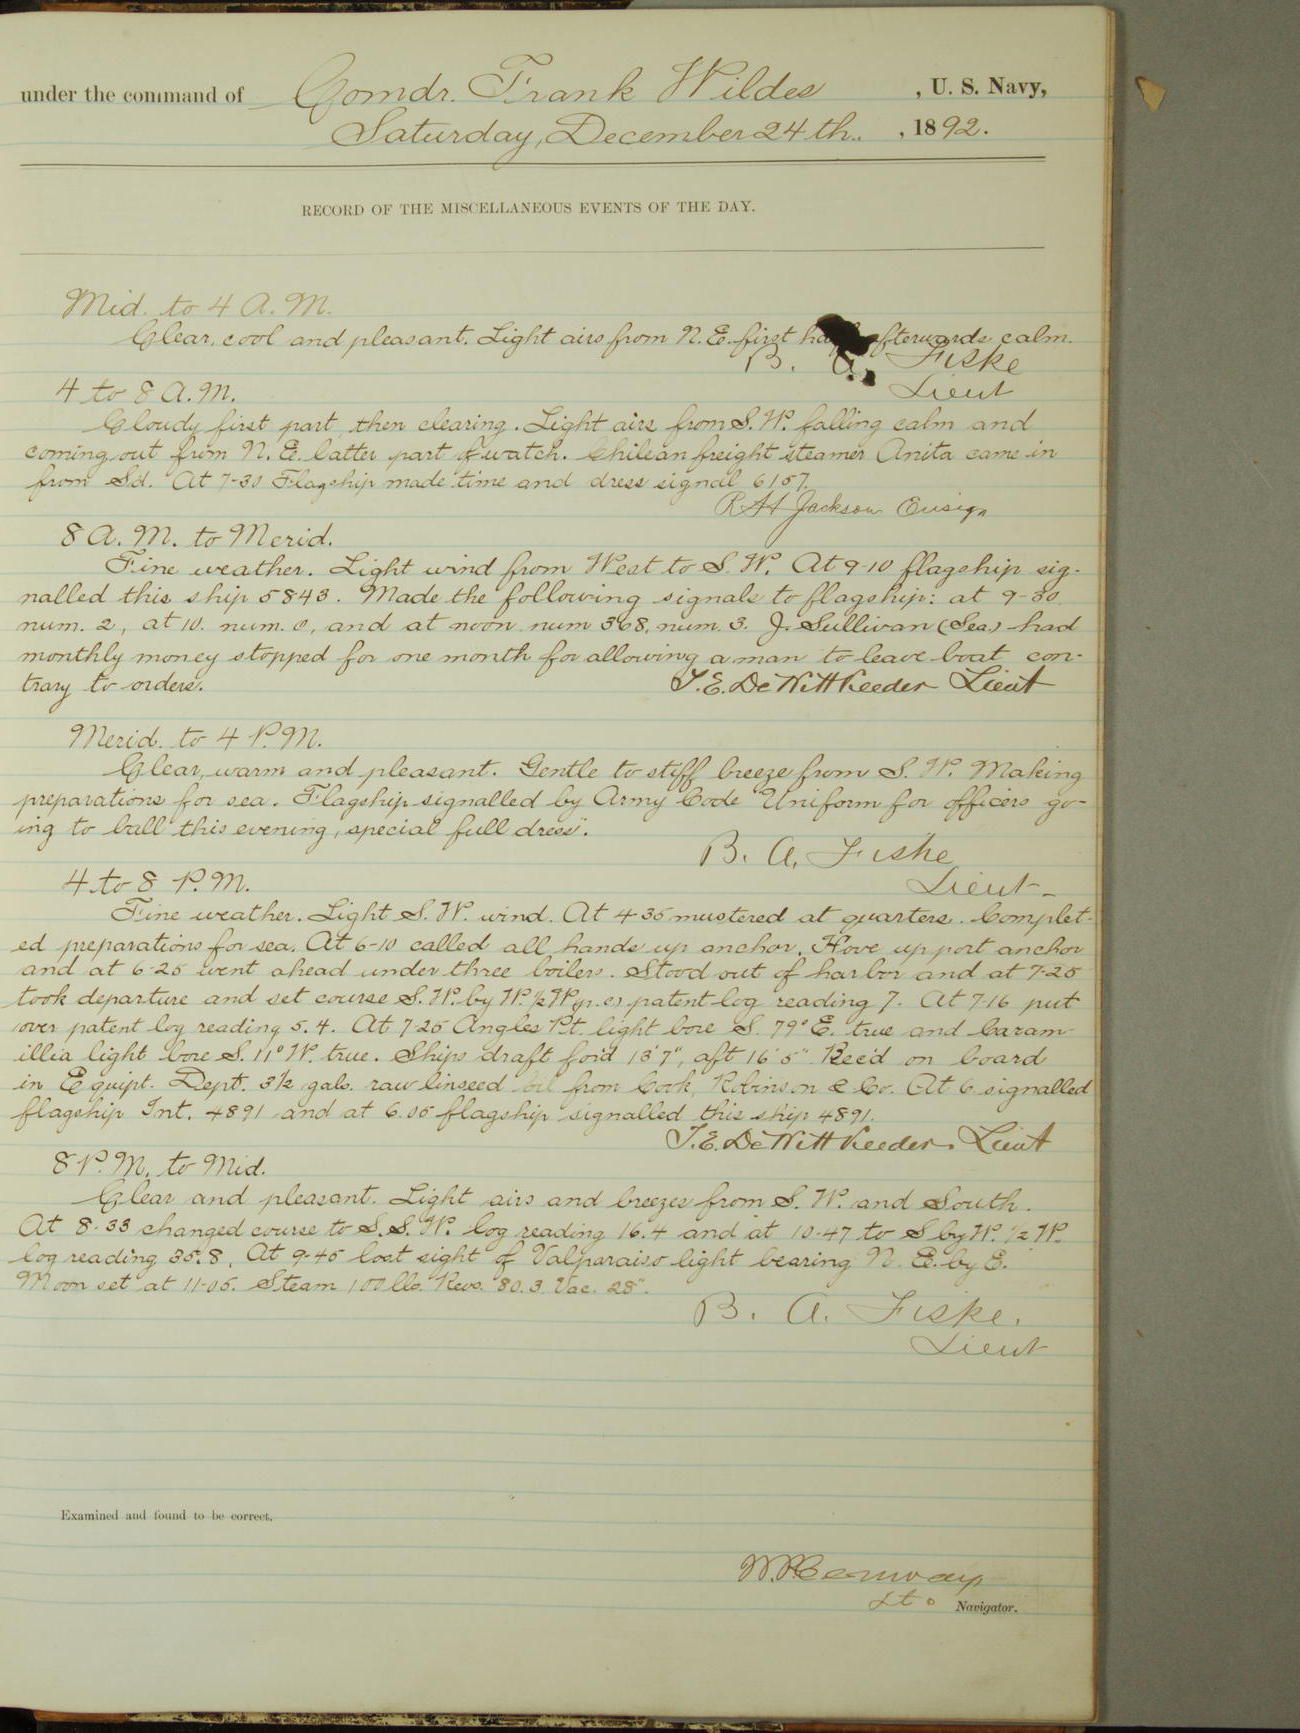 under the command of Comdr. Frank Wildes , U. S. Navy,
Saturday, December 24th. , 1892.
RECORD OF THE MISCELLANEOUS EVENTS OF THE DAY.
Mid. to 4 A.M.
Clear, cool and pleasant. Light airs from N.E. first afterwards calm.
B. A. Fiske
Lieut
4 to 8 A.M.
Cloudy first part, then clearing. Light airs from S.W. falling calm and
coming out from N.E. latter part of watch. Chilean freight steamer Anita came in
from Sd. At 7-30 Flagship made time and dress signal 6157.
R H Jackson Ensign
8 A.M. to Merid.
Fine weather. Light wind from West to S.W. At 9-10 flagship sig-
nalled this ship 5843. Made the following signals to flagship: at 9-30
num. 2, at 10. num. 0, and at noon num 368, num. 3. J. Sullivan (Sea) had
monthly money stopped for one month for allowing a man to leave boat con-
trary to orders.
T.E. DeWitt Veeder Lieut
Merid. to 4 P.M.
Clear, warm and pleasant. Gentle to stiff breeze from S.W. Making
preparations for sea. Flagship signalled by Army Code "Uniform for officers go-
ing to ball this evening, special full dress".
B. A. Fiske
Lieut-
4 to 8 P.M.
Fine weather. Light S.W. wind. At 4-35 mustered at quarters. Complet-
ed preparations for sea. At 6-10 called all hands up anchor. Hove up port anchor
and at 6-25 went ahead under three boilers. Stood out of harbor and at 7-25
took departure and set course S.W. by W. ½ W (p.c) patent log reading 7. At 7-16 put
over patent log reading 5.4. At 7-25 Angles Pt. light bore S. 79° E. true and Caram-
illia light bore S. 11° W. true. Ships draft for'd 13'7", aft 16'5". Rec'd on board
in Equipt. Dept. 3½ gals. raw linseed oil from Cook, Robinson & Co. At 6 signalled
flagship Int. 4891 and at 6.05 flagship signalled this ship 4891.
T.E. DeWitt Veeder. Lieut
8 P.M. to Mid.
Clear and pleasant. Light airs and breezes from S.W. and South.
At 8-33 changed course to S.S.W. log reading 16.4 and at 10-47 to S by W. ½ W.
log reading 35.8. At 9-45 lost sight of Valparaiso light bearing N.E. by E.
Moon set at 11-05. Steam 100 lbs. Revs. 80.3. Vac. 28".
B. A. Fiske.
Lieut
Examined and found to be correct.
Lt. Navigator.